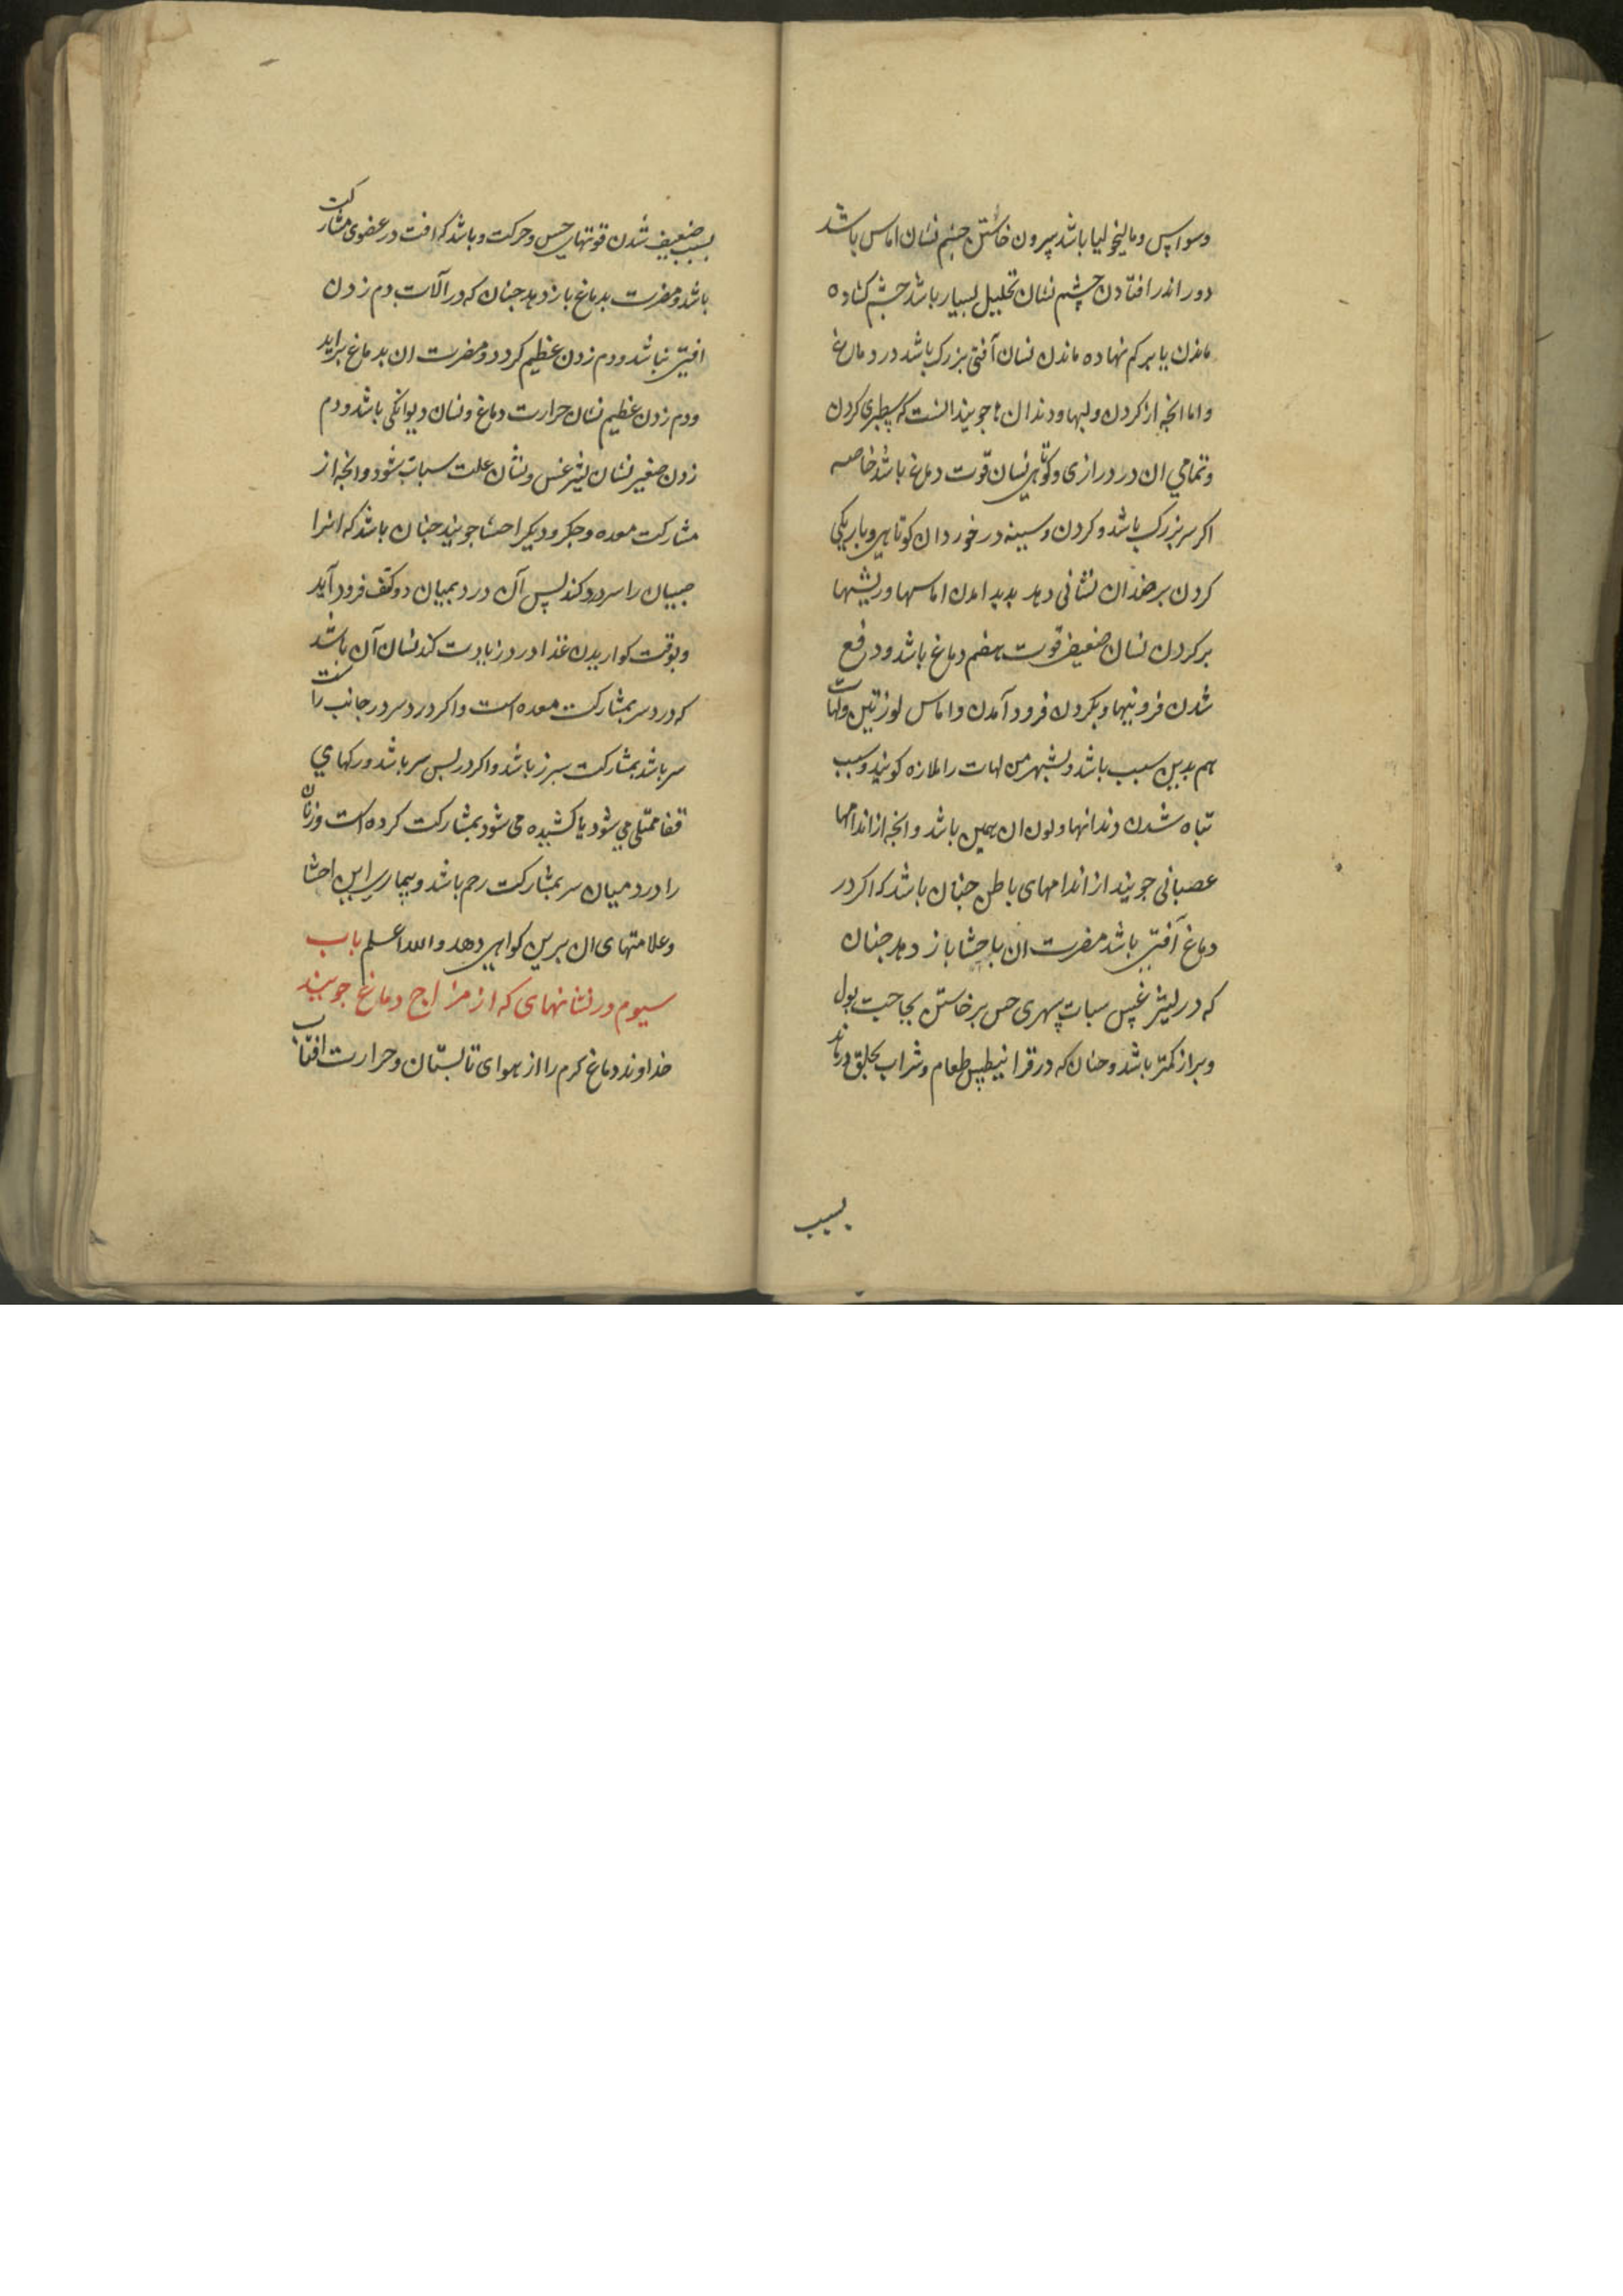 وسواس و مالیخولیا باشد بیرون خاستن چشم نشان اماس باشد
دور اندر افتادن چشم نشان تحلیل بسیار باشد چشم کشاده
ماندن یا بر هم نهاده ماندن نشان آفتی بزرک باشد در دماغ
و اما انچه از کردن و لبها و دندان ها جویند انست که سطبری کردن
و تمامی ان در درازی و کوتاهی نشان قوت دماغ باشد خاصه
اکر سر بزرک باشد و کردن و سینه در خورد ان کوتاهی و باریکی
کردن بر ضد ان نشانی دهد پدید امدن اماسها و ریشها
بر کردن نشان ضعیف قوت هضم دماغ باشد و دفع
شدن فزونیها و بکردن فرود آمدن و اماس لوزتین و لهات
هم بدین سبب باشد و بشهر من لهات را ملازه کویند و سبب
تباه شدن دندانها و لون ان همین باشد و انچه از اندامها
عصبانی جویند از اندامهای باطن چنان باشد که اکر در
دماغ آفتی باشد مضرت ان باحشا باز دهد چنان
که در لیثرغس سبات سهری حس برخاستن بحاجت بول
و براز کمتر باشد و چنان که در قرانیطس طعام و شراب بحلق درماند
بسبب
بسبب ضعیف شدن قوتهای حس و حرکت و باشد که افت در عضوی مشارکت
باشد و مضرت بدماغ باز دهد چنان که در آلات دم زدن
افتی باشد و دم زدن عظیم کردد و مضرت ان بدماغ براید
و دم زدن عظیم نشان حرارت دماغ و نشان دیوانکی باشد و دم
زدن صغیر نشان لیثرغس و نشان علت سبات شود و انچه از
مشارکت معده و جکر و دیکر احشا جویند چنان باشد که انرا
صبیان را سر درد کند پس آن درد بمیان دو کتف فرود آید
و بوقت کواریدن غذا درد زیادت کند نشان آن باشد
که درد سر بمشارکت معده است و اکر درد سر در جانب راست
سر باشد بمشارکت سپرز باشد و اکر در پس سر باشد و رکهای
قفا ممتلی می شود یا کشیده می شود بمشارکت کرده است و زنان
را درد میان سر بمشارکت رحم باشد و بیماری این احشا
و علامتهای ان برین کواهی دهد و الله اعلم باب
سیوم در نشانهای که از مزاج دماغ جویند
خداوند دماغ کرم را از هوای تابستان و حرارت افتاب